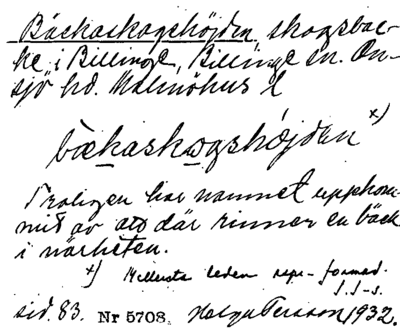 Bäckaskogshöjden skogsbac-
ke i Billinge, Billinge sn. On-
sjö hd. Malmöhus l
bäckaskogshöjden x)
Troligen har namnet uppkom-
mit av att där rinner en bäck
i närheten.
x) Mellersta leden repr-formad.
sid. 83. Nr 5708. Helga Persson 1932.